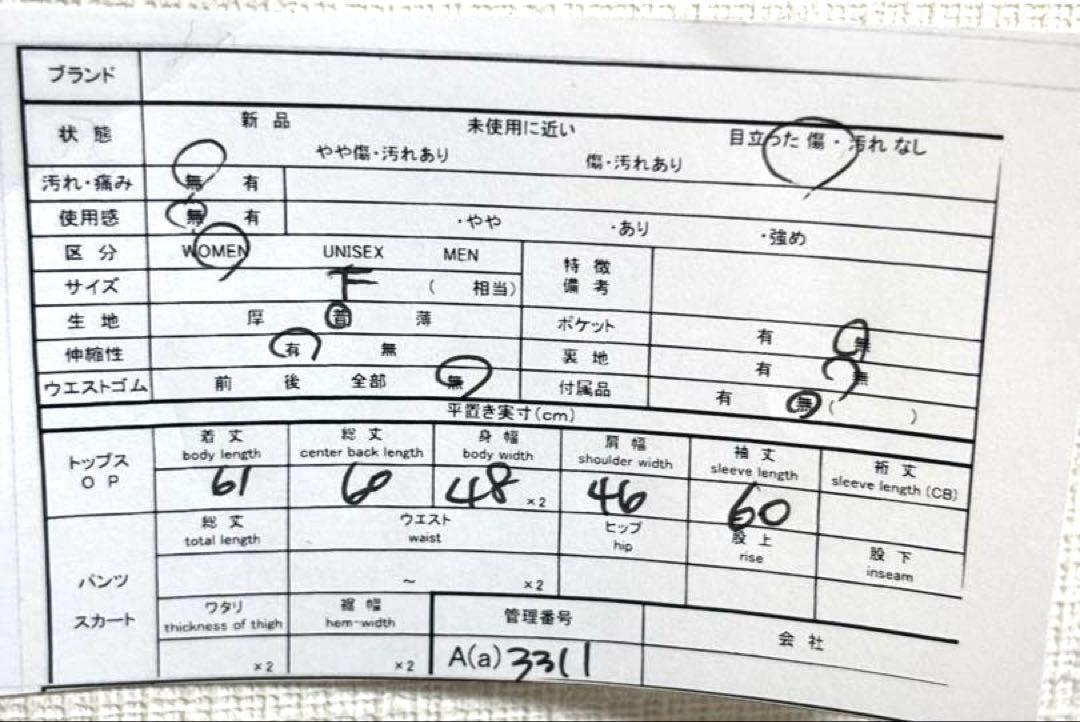 ブランド
状態 新品 未使用に近い 目立った傷・汚れなし
やや傷・汚れあり 傷・汚れあり
汚れ・痛み 無 有
使用感 無 有 ・やや ・あり ・強め
区分 WOMEN UNISEX MEN 特徴備考
サイズ F ( 相当)
生地 厚 普 薄 ポケット 有 無
伸縮性 有 無 裏地 有 無
ウエストゴム 前 後 全部 無 付属品 有 無 ( )
平置き実寸(cm)
トップス OP 着丈 総丈 身幅 肩幅 袖丈 裄丈
body length center back length body width shoulder width sleeve length sleeve length (CB)
61 60 48 ×2 46 60
パンツ スカート 総丈 ウエスト ヒップ 股上 股下
total length waist hip rise inseam
~ ×2
ワタリ 裾幅 管理番号 会社
thickness of thigh hem-width
×2 ×2 A(a) 3311